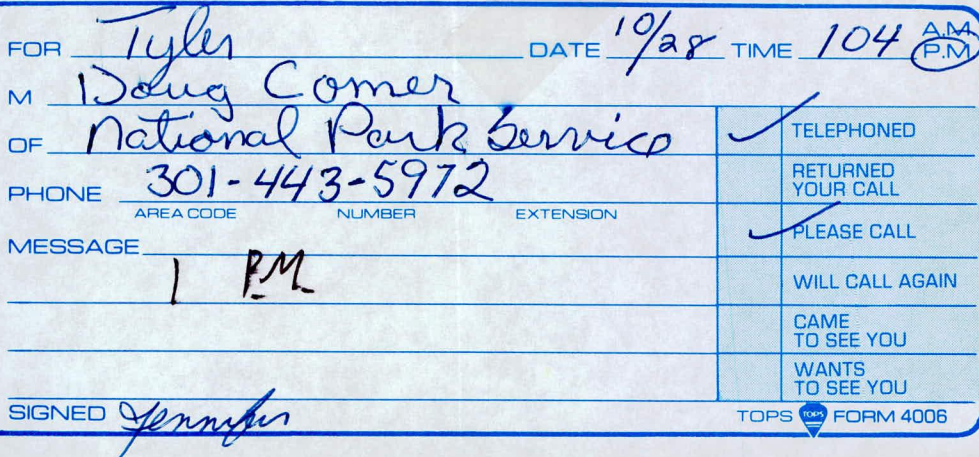 FOR Tyler DATE 10/28 TIME 104 A.M. P.M.
M Doug Comer
OF National Park Service
PHONE 301-443-5972
AREA CODE NUMBER EXTENSION
MESSAGE
1 P.M.
TELEPHONED
RETURNED
YOUR CALL
PLEASE CALL
WILL CALL AGAIN
CAME
TO SEE YOU
WANTS
TO SEE YOU
SIGNED Jennifer
TOPS TOPS FORM 4006